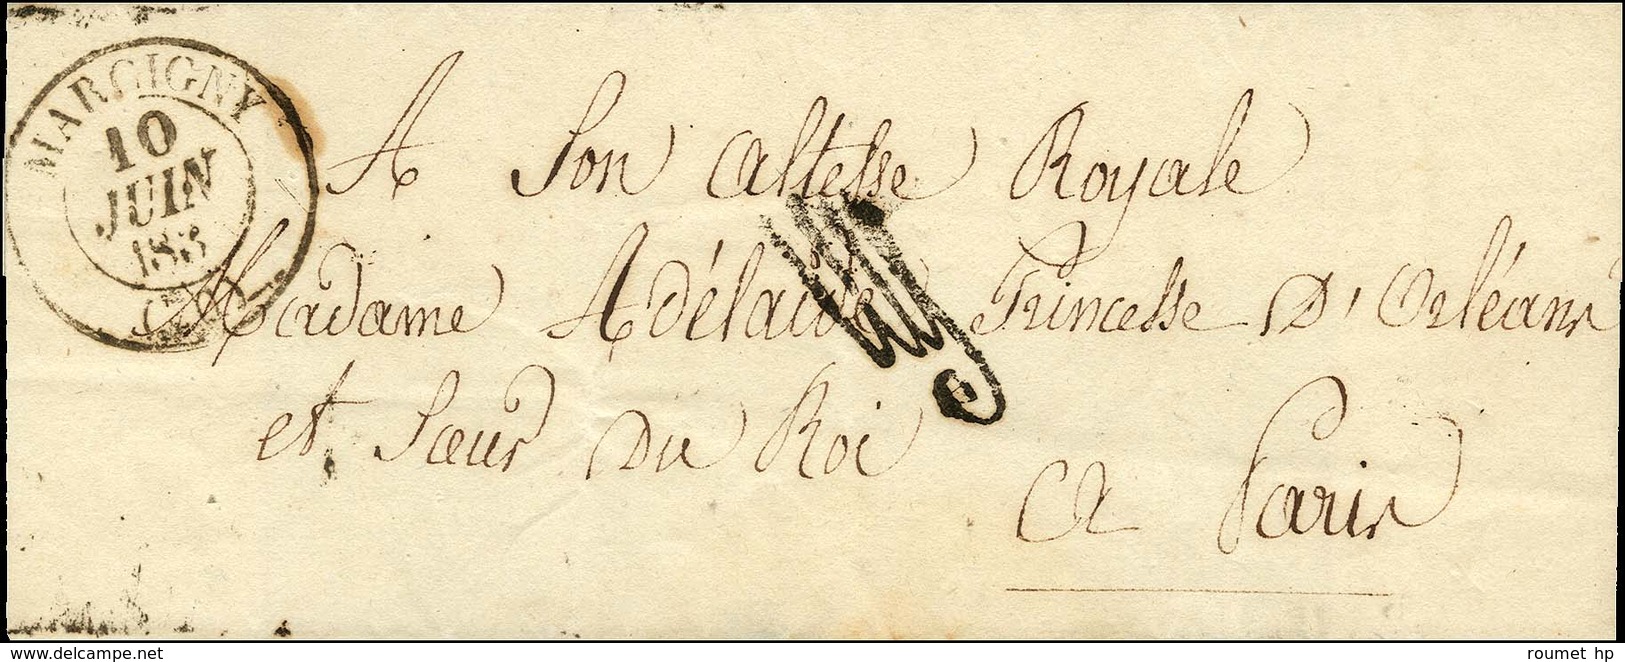 MARCIGNY
10
JUIN
183
A Son Altesse Royale
Madame Adélaide Princesse D'Orléans
et Sœur Du Roi
A Paris
www.delcampe.net
roumet hp